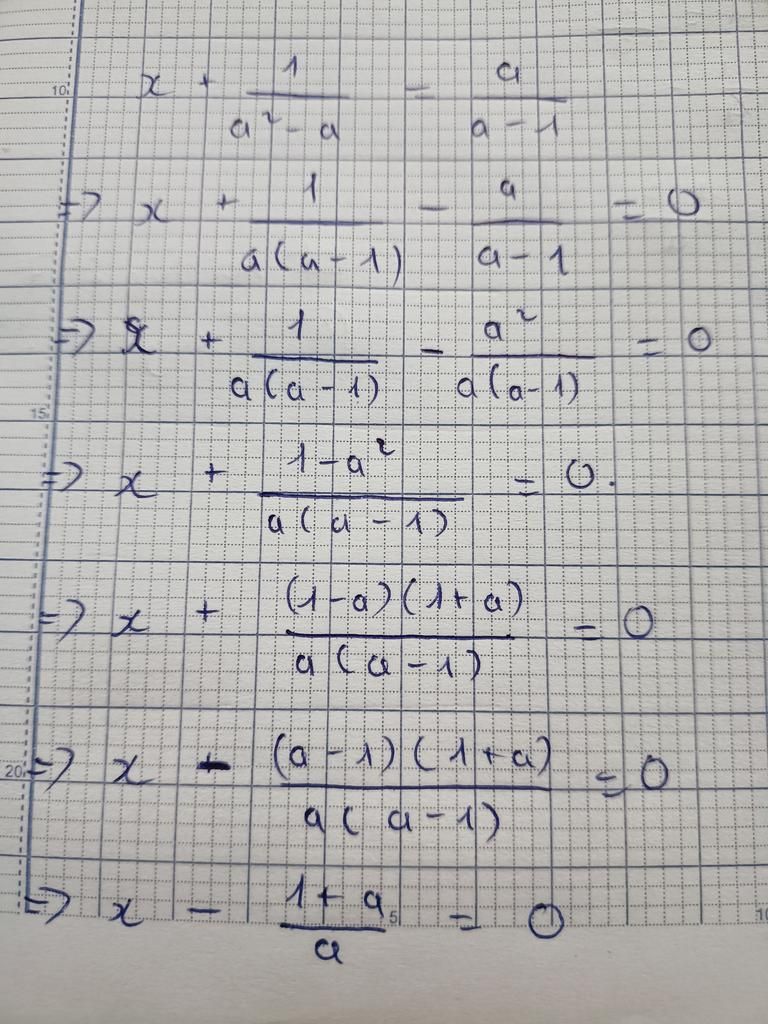 10
x + 1/(a² - a) = a/(a - 1)
=> x + 1/(a(a - 1)) - a/(a - 1) = 0
=> x + 1/(a(a - 1)) - a²/(a(a - 1)) = 0
15
=> x + (1 - a²)/(a(a - 1)) = 0.
=> x + ((1 - a)(1 + a))/(a(a - 1)) = 0
20
=> x - ((a - 1)(1 + a))/(a(a - 1)) = 0
=> x - (1 + a)/a = 0
5
10